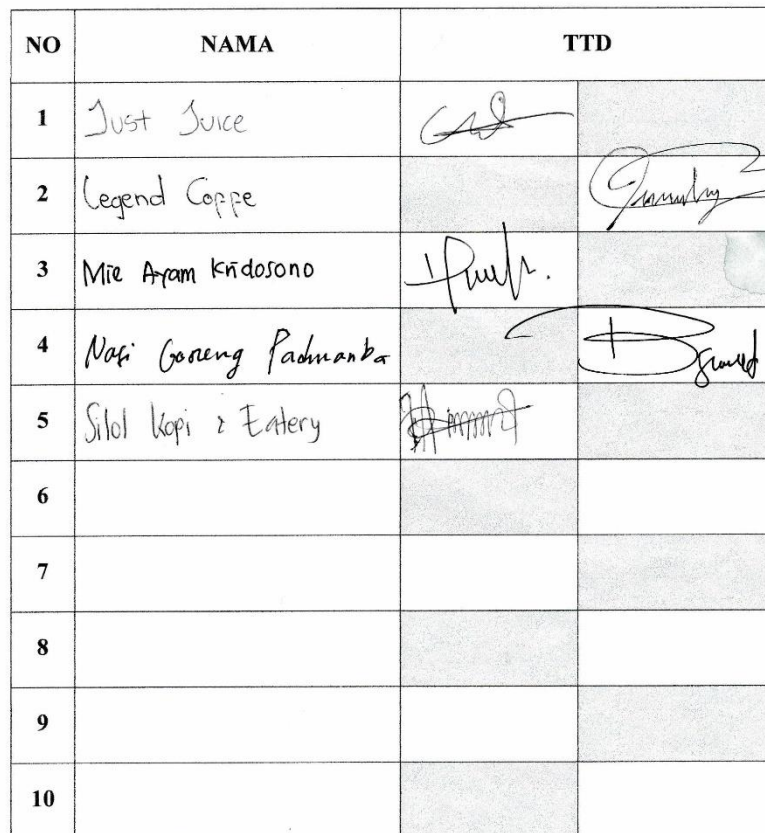 NO NAMA TTD
1 Just Juice
2 Legend Coppe
3 Mie Ayam Kridosono
4 Nasi Goreng Padmanba
5 Silol Kopi & Eatery
6
7
8
9
10